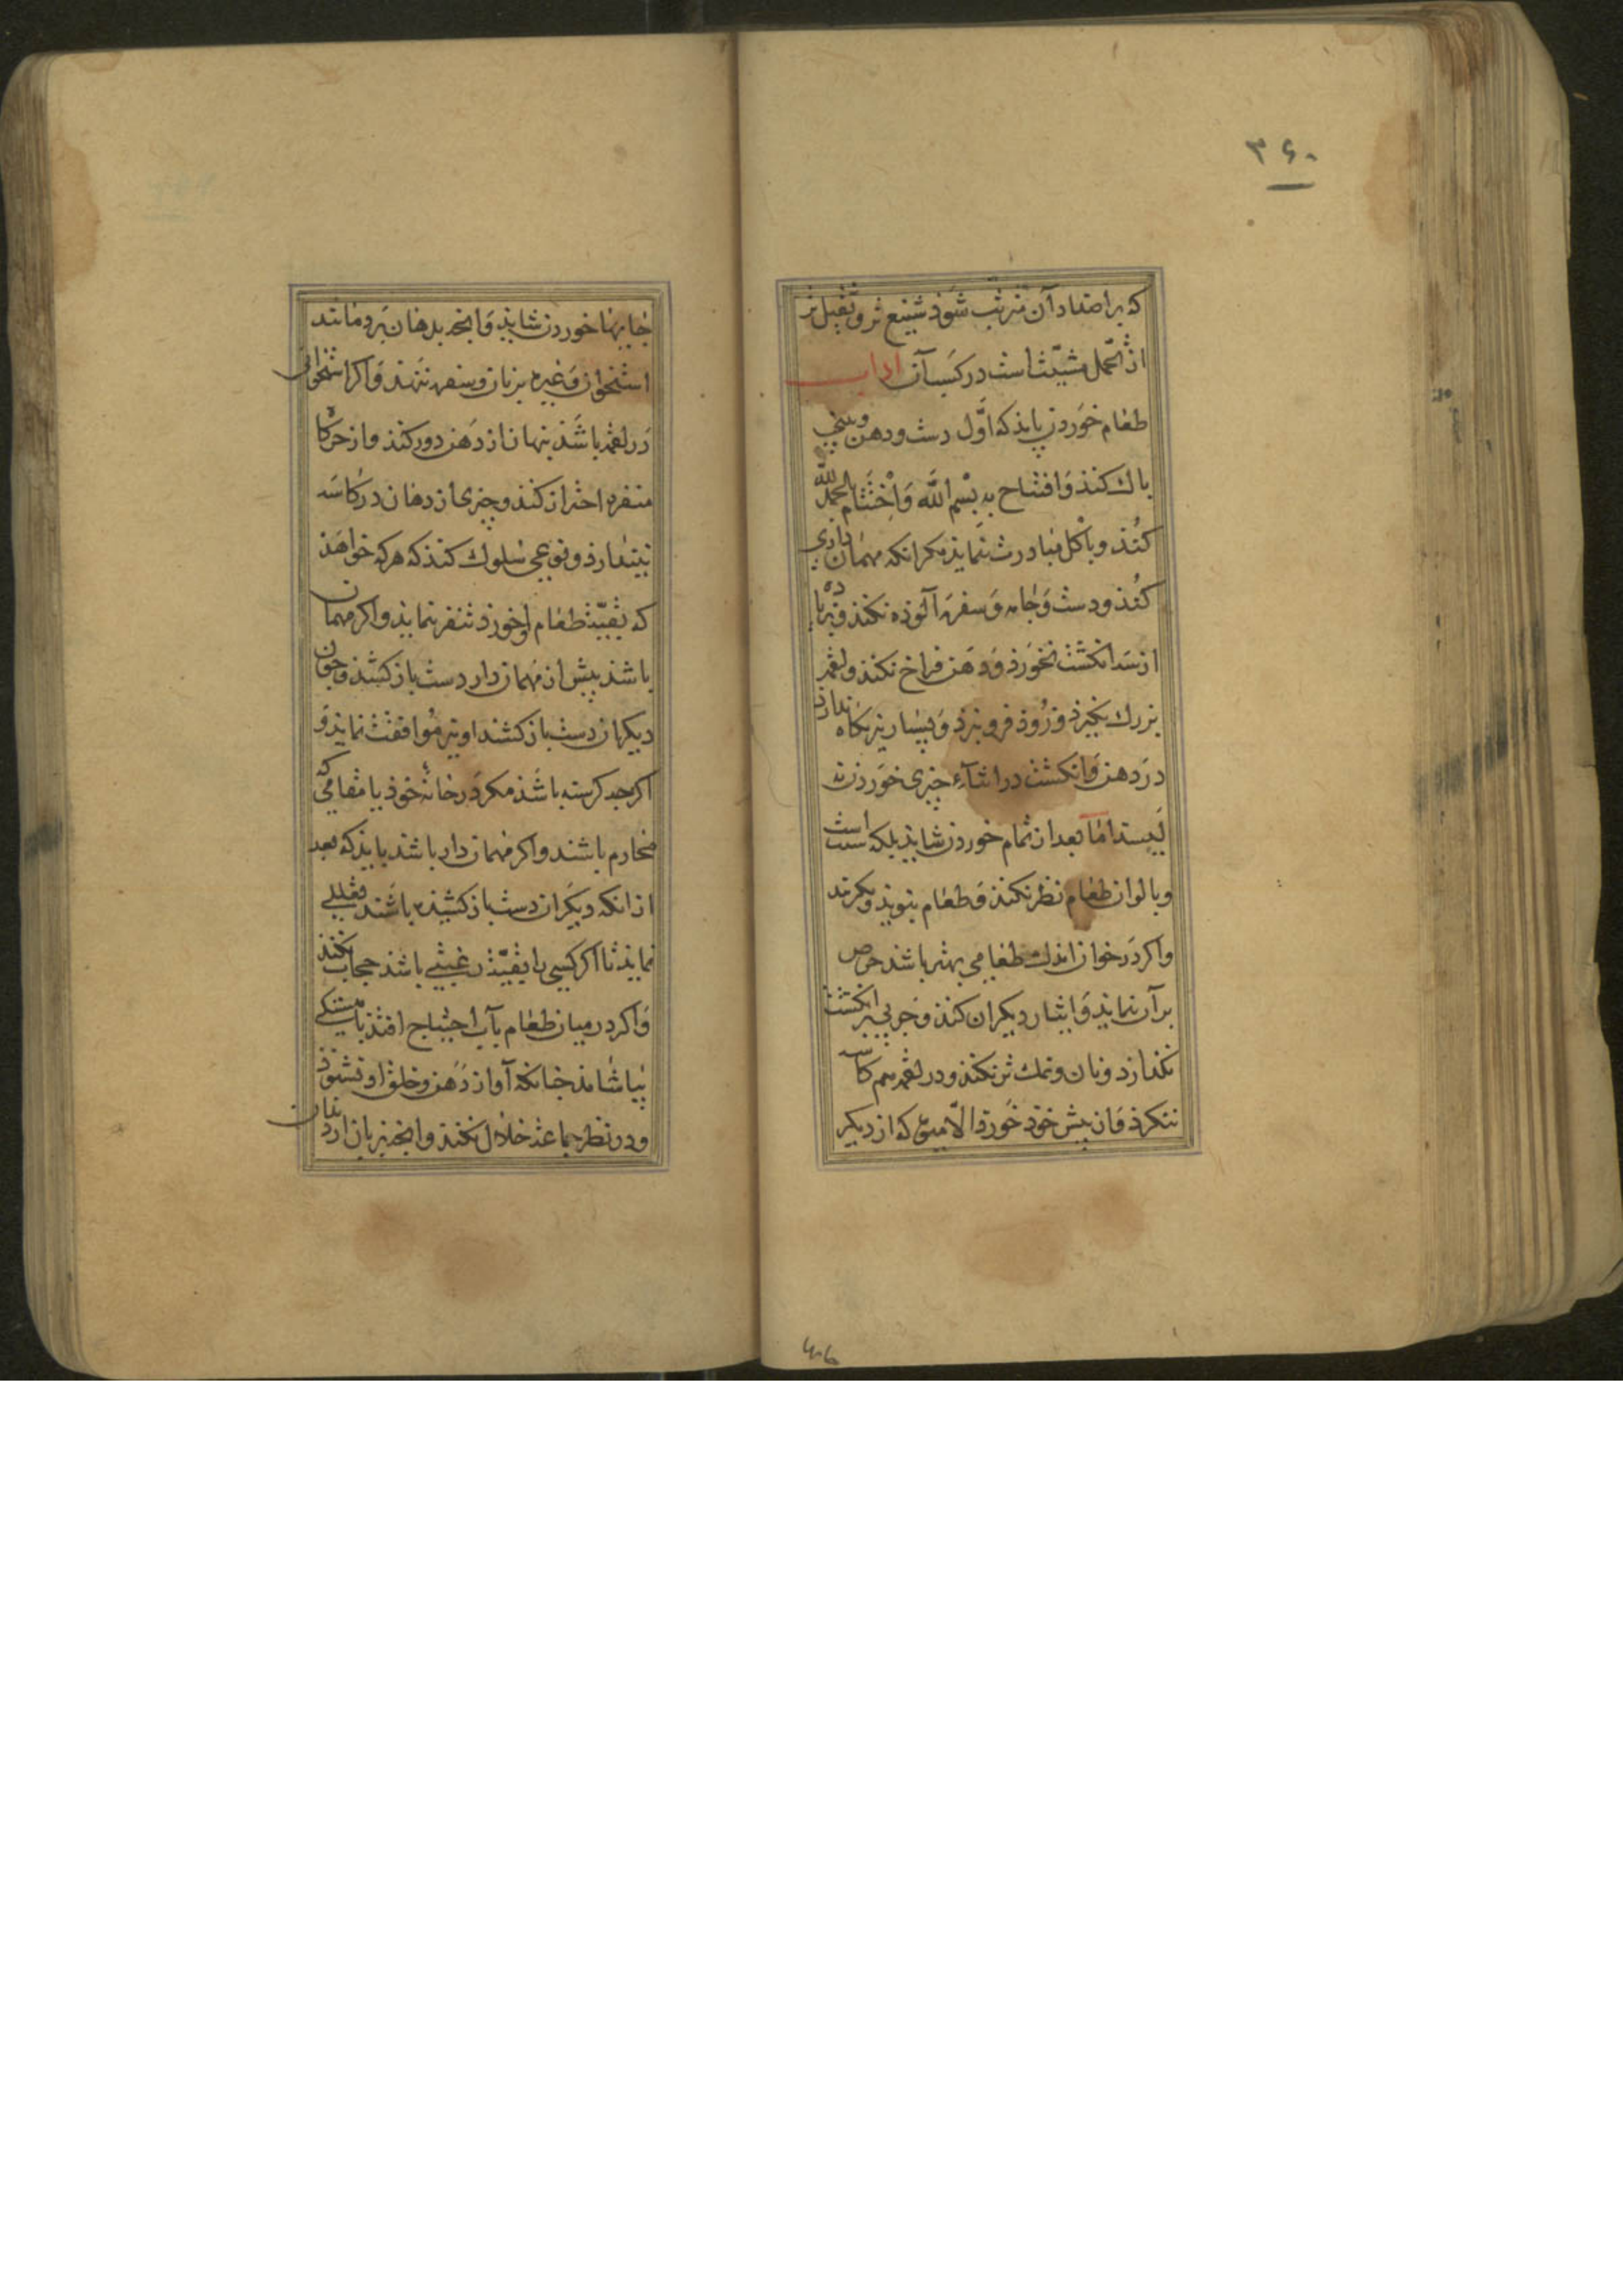 ۳۶۰
که بر اضداد آن مترتب شوذ شنیع تر و ثقیل تر
از تحمل مشیّت است در کسب آن اداب
طعام خوردن بایذ که اوّل دست و دهن و بینی
باك کنذ و افتتاح به بسم الله و اختتام بالحمدلله
کنذ و باکل مبادرت ننمایذ مکر انکه مهمان داری
کنذ و دست و جامه و سفره آلوذه نکنذ و زیاده
از سه انکشت نخورذ و دهن فراخ نکنذ و لقمه
بزرك نکیرذ و زوذ فرو نبرذ و بسیار نیز نکاه ندارذ
در دهن و انکشت در اثنآء چیزی خوردن نه
لیسد اما بعد از تمام خوردن شایذ بلکه سنت است
و بالوان طعام نظر نکنذ و طعام نبویذ و نکزیند
و اکر در خوان اندك طعامی بهتر باشد حرص
بر آن ننمایذ و ایثار دیکران کنذ و چربی بر انکشت
نکذارد و نان و نمك تر نکنذ و در لقمه هم کاسه
ننکرذ و از بیش خوذ خورذ الا میوه که از دیکر
جایها خوردن شایذ و انچه بدهان برد مانند
استخوان و غیره بر نان و سفره ننهد و اکر استخوانی
در لقمه باشذ بنهان از دهن دور کنذ و از حرکات
متنفره احتراز کنذ و چیزی از دهان در کاسه
نیندازذ و نوعی سلوك کنذ که هر که خواهذ
که بقیّت طعام او خورذ تنفر ننمایذ و اکر مهمان
باشذ بیش از مهمان دار دست باز کشذ و چون
دیکران دست باز کشند او نیز موافقت نمایذ و
اکرچه کرسنه باشذ مکر در خانه خوذ یا مقامی که
محارم باشند و اکر مهمان دار باشذ بایذ که بعد
از انکه دیکران دست باز کشیذه باشند تعللی
نمایذ تا اکر کسی را بقیّت رغبتی باشذ حجاب نکنذ
و اکر در میان طعام بآب احتیاج افتذ باهستکی
بیاشامذ چنانکه آواز دهن و حلق او نشنوذ
و در نظر جماعت خلال نکنذ و انچه بزبان از دندان